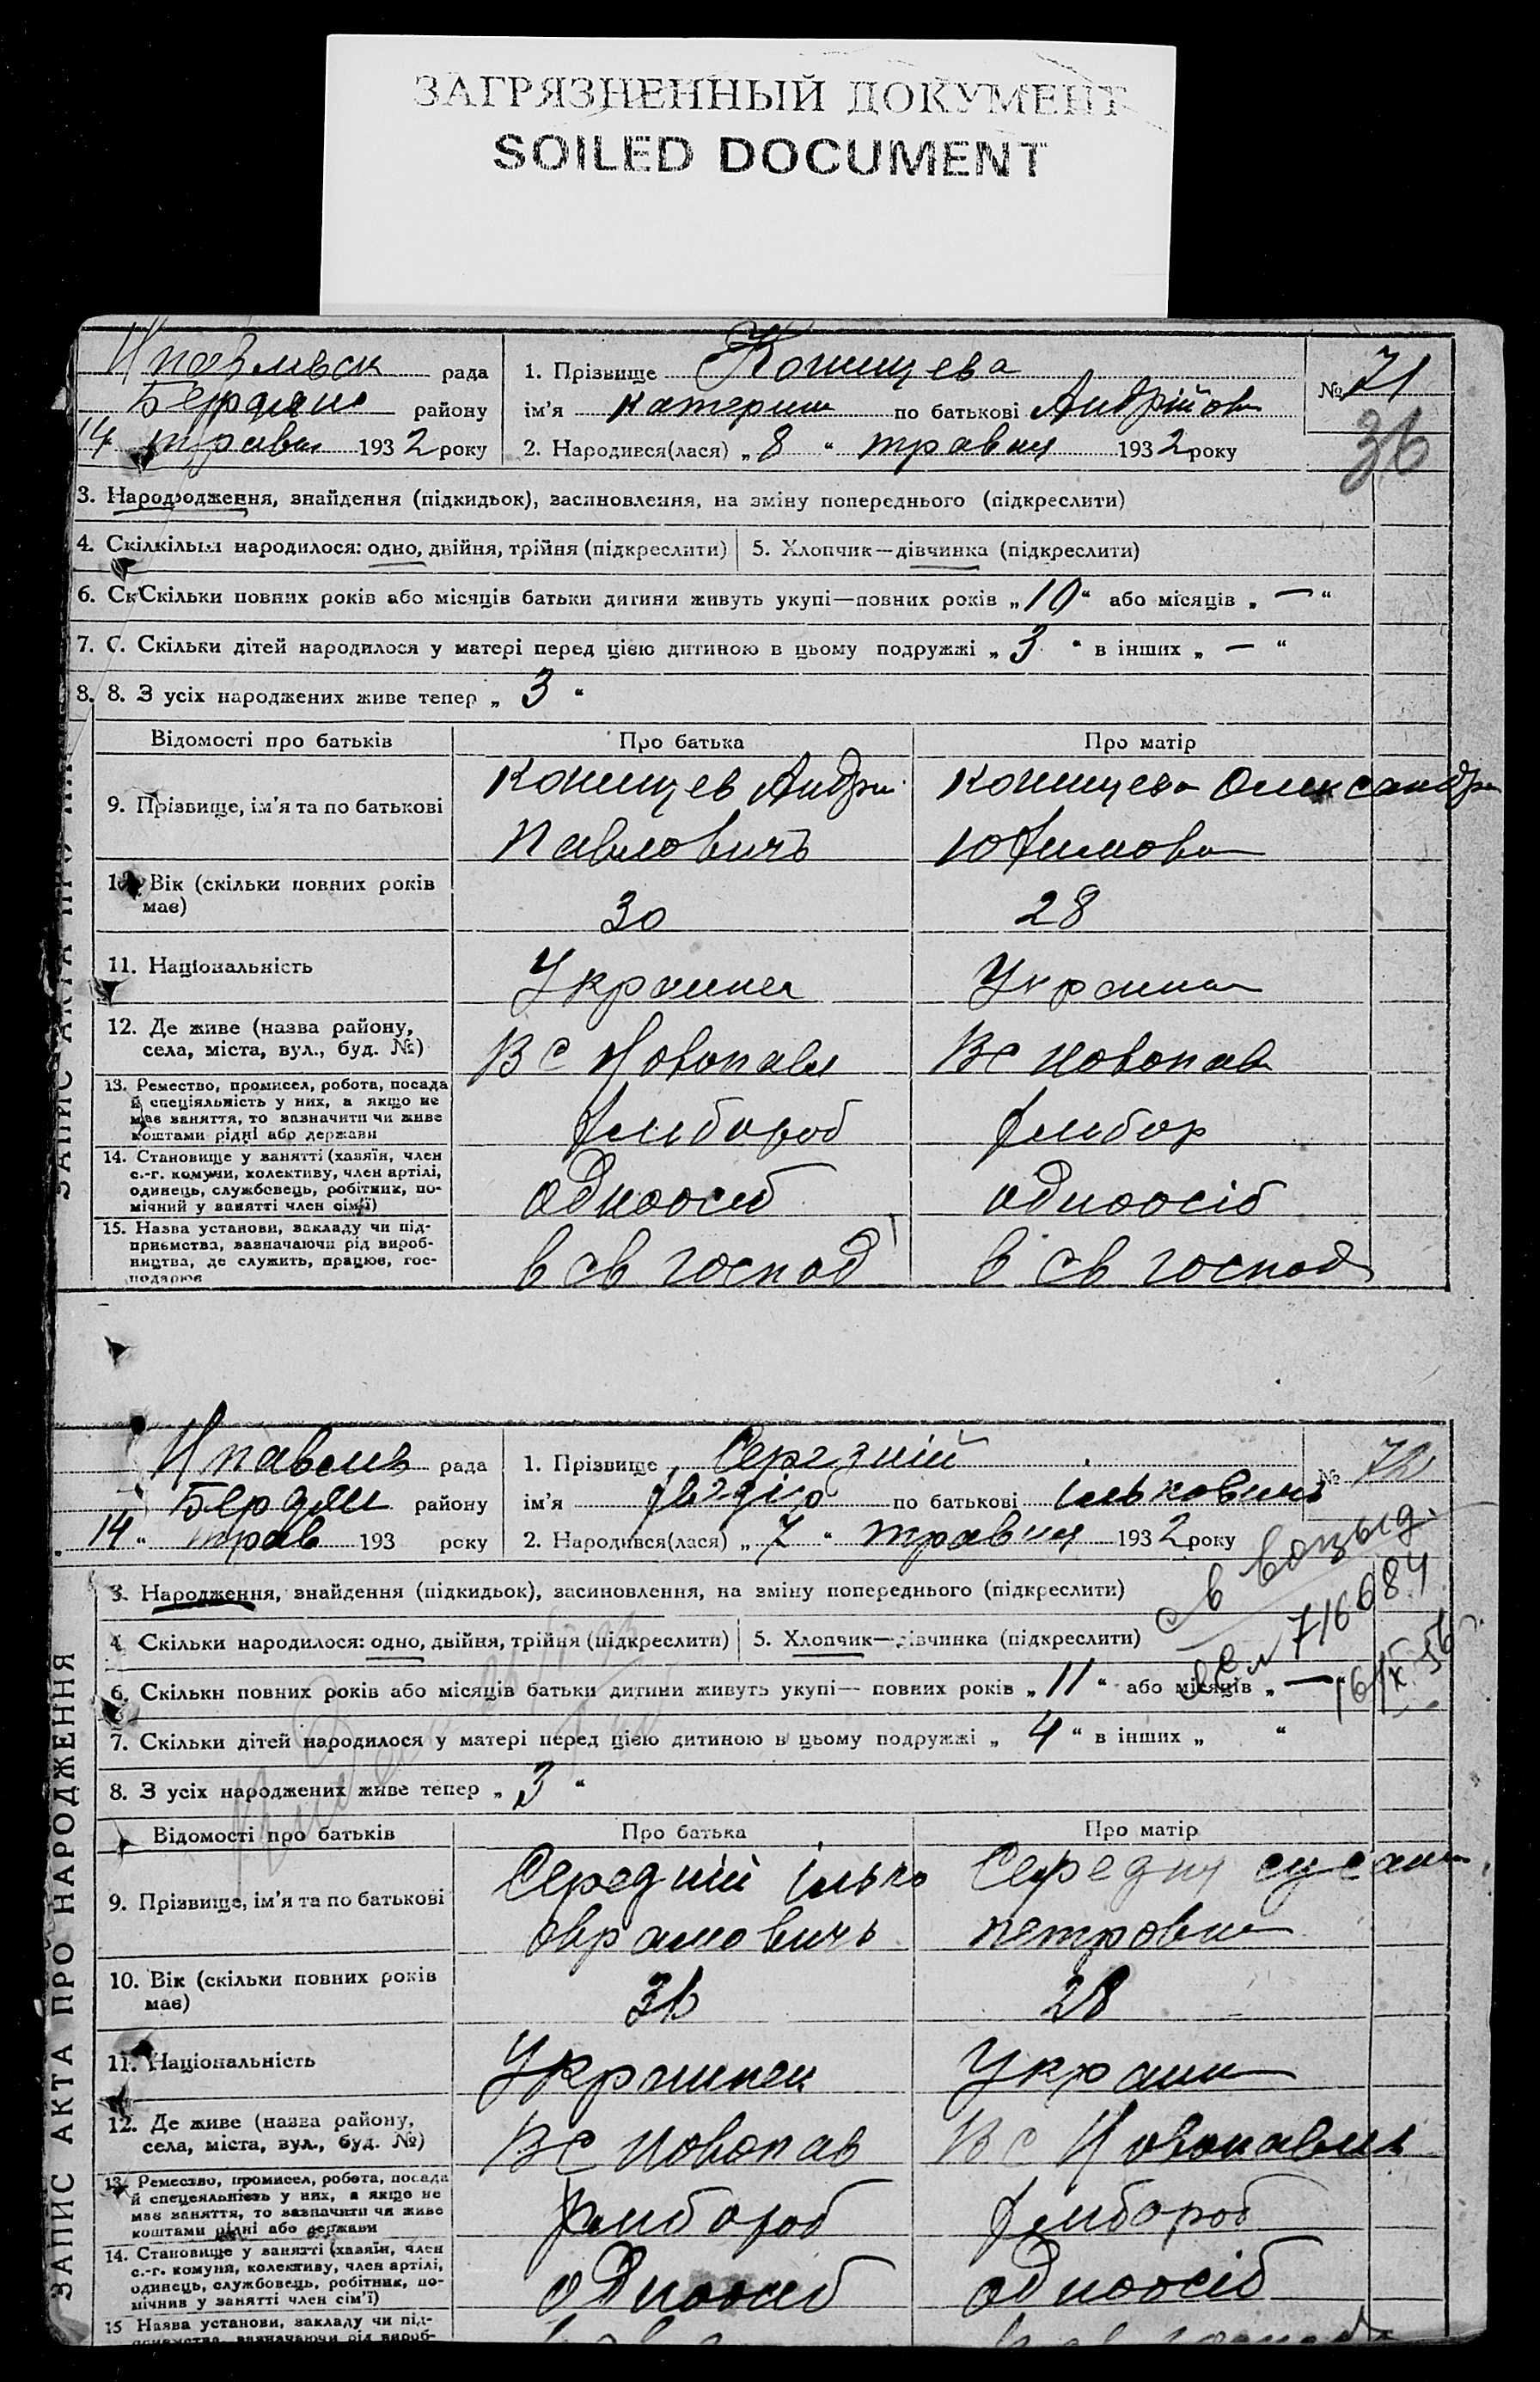 ЗАГРЯЗНЕННЫЙ ДОКУМЕНТ
SOILED DOCUMENT
рада
району
14 травня 1932 року
1. Прізвище Конищева
ім'я Катерина по батькові Андрійовн
2. Народився(лася) „8“ травня 1932 року
№ 71
36
3. Народродження, знайдення (підкидьок), засиновлення, на зміну попереднього (підкреслити)
4. Скілкільки народилося: одно, двійня, трійня (підкреслити)
5. Хлопчик—дівчинка (підкреслити)
6. СкСкільки повних років або місяців батьки дитини живуть укупі—повних років „10“ або місяців „—“
7. С. Скільки дітей народилося у матері перед цією дитиною в цьому подружжі „3“ в інших „—“
8. 8. З усіх народжених живе тепер „3“
Відомості про батьків
Про батька
Про матір
9. Прізвище, ім'я та по батькові
Конищев Андрій
Павловичъ
Конищева Олександра
Юфимовн
10. Вік (скільки повних років має)
30
28
11. Національність
Украинец
Украинка
12. Де живе (назва району,
села, міста, вул., буд. №)
В С Новопавл
В С Новопав
13. Ремество, промисел, робота, посада
й спеціяльність у них, а якщо не
має заняття, то зазначити чи живе
коштами рідні або держави
хлибороб
хлибор
14. Становище у занятті (хазяїн, член
с.-г. комуни, колективу, член артілі,
одинець, службовець, робітник, по-
мічний у занятті член сім'ї)
одноосіб
одноосіб
15. Назва установи, закладу чи під-
приємства, зазначаючи рід вироб-
ництва, де служить, працює, гос-
подарює
в св господ
в св господ
Нпавлів рада
Бердян району
„14“ трав 193 року
1. Прізвище Середній
ім'я по батькові ількович
2. Народився(лася) „7“ травня 1932 року
№ 72
3. Народження, знайдення (підкидьок), засиновлення, на зміну попереднього (підкреслити)
4. Скільки народилося: одно, двійня, трійня (підкреслити)
5. Хлопчик—дівчинка (підкреслити)
716684
6. Скільки повних років або місяців батьки дитини живуть укупі— повних років „11“ або місяців „—“
7. Скільки дітей народилося у матері перед цією дитиною в цьому подружжі „4“ в інших „ “
8. З усіх народжених живе тепер „3“
Відомості про батьків
Про батька
Про матір
9. Прізвище, ім'я та по батькові
Середній ілько
оврамовичь
Середня сусана
петровна
10. Вік (скільки повних років
має)
28
11. Національність
Украинец
Украин
12. Де живе (назва району,
села, міста, вул., буд. №)
В С Новопав
В С Новопавлів
13. Ремество, промисел, робота, посада
й спецеяльність у них, а якщо не
має заняття, то зазначити чи живе
коштами рідні або держави
хлибороб
хлибороб
14. Становище у занятті (хазяїн, член
с.-г. комуни, колективу, член артілі,
одинець, службовець, робітник, по-
мічнив у занятті член сім'ї)
одноосіб
одноосіб
15 Назва установи, закладу чи під-
приємства, зазначаючи рід вироб-
ЗАПИС АКТА ПРО НАРОДЖЕННЯ